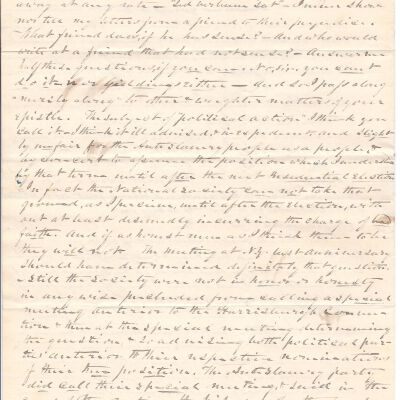 away at any rate – "Sed verbum sat" – I never show
nor tell me letters from a friend to their prejudice.
What friend does, if he has sense? – And who would
write at a friend that had not sense? – Answer me
these questions if you can, sir, you can't
do it, nor Giddings either – and so I pass along
merrily along to other & weightier matters of your
epistle. The subject of "political action" I think you
call it – I think it ill advised, & inexpedient, and slight
ly unfair for the Antislavery people as a people, &
in concert to assume the position which I understand
by that term until after the next Presidential Election
In fact the National Society can not take that
ground, as I presume, until after the Election, with
out at least decidedly incurring the charge of bad
faith. And if as honest men – as I think them – to be
they will not. The meeting at N.Y. last anniversary
should have determined definitely that question
– Still the Society were not in honor or honesty
in any wise precluded from calling a special
meeting anterior to the Harrisburgh Conven
tion & then at the special meeting determining
the question, & so advising both political par
ties anterior to their respective nominations
of their true position. The Antislavery party
did call their special meeting, & said in the